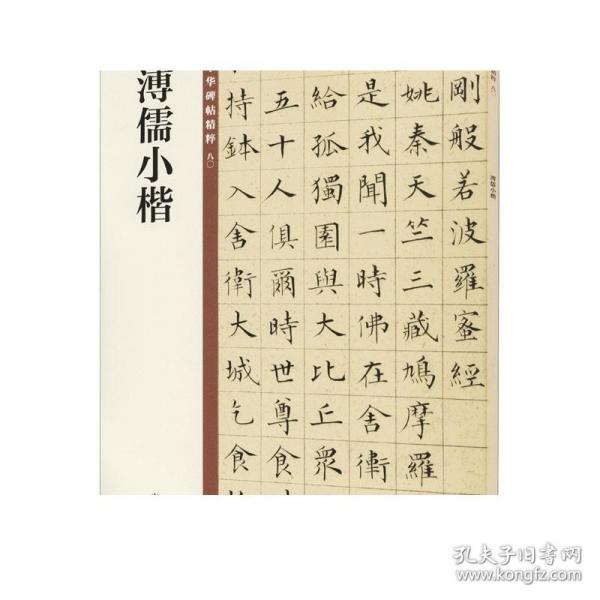 溥儒小楷
华碑帖精粹 八〇
剛般若波羅蜜經
姚秦天竺三藏鳩摩羅
是我聞一時佛在舍衛
給孤獨園與大比丘眾
五十人俱爾時世尊食
持鉢入舍衛大城乞食
溥儒小楷
孔夫子旧书网
www.kongfz.com